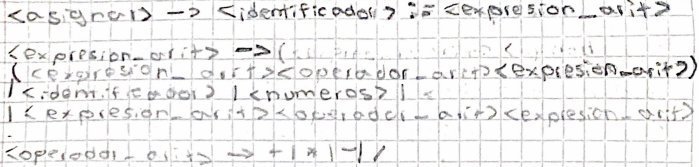 <asignar> -> <identificador> := <expresion_arit>
<expresion_arit> -> (
(<expresion_arit><operador_arit><expresion_arit>)
|<identificador> |<numeros>|<
|<expresion_arit><operador_arit><expresion_arit>
<operador_arit> -> +|*|-|/